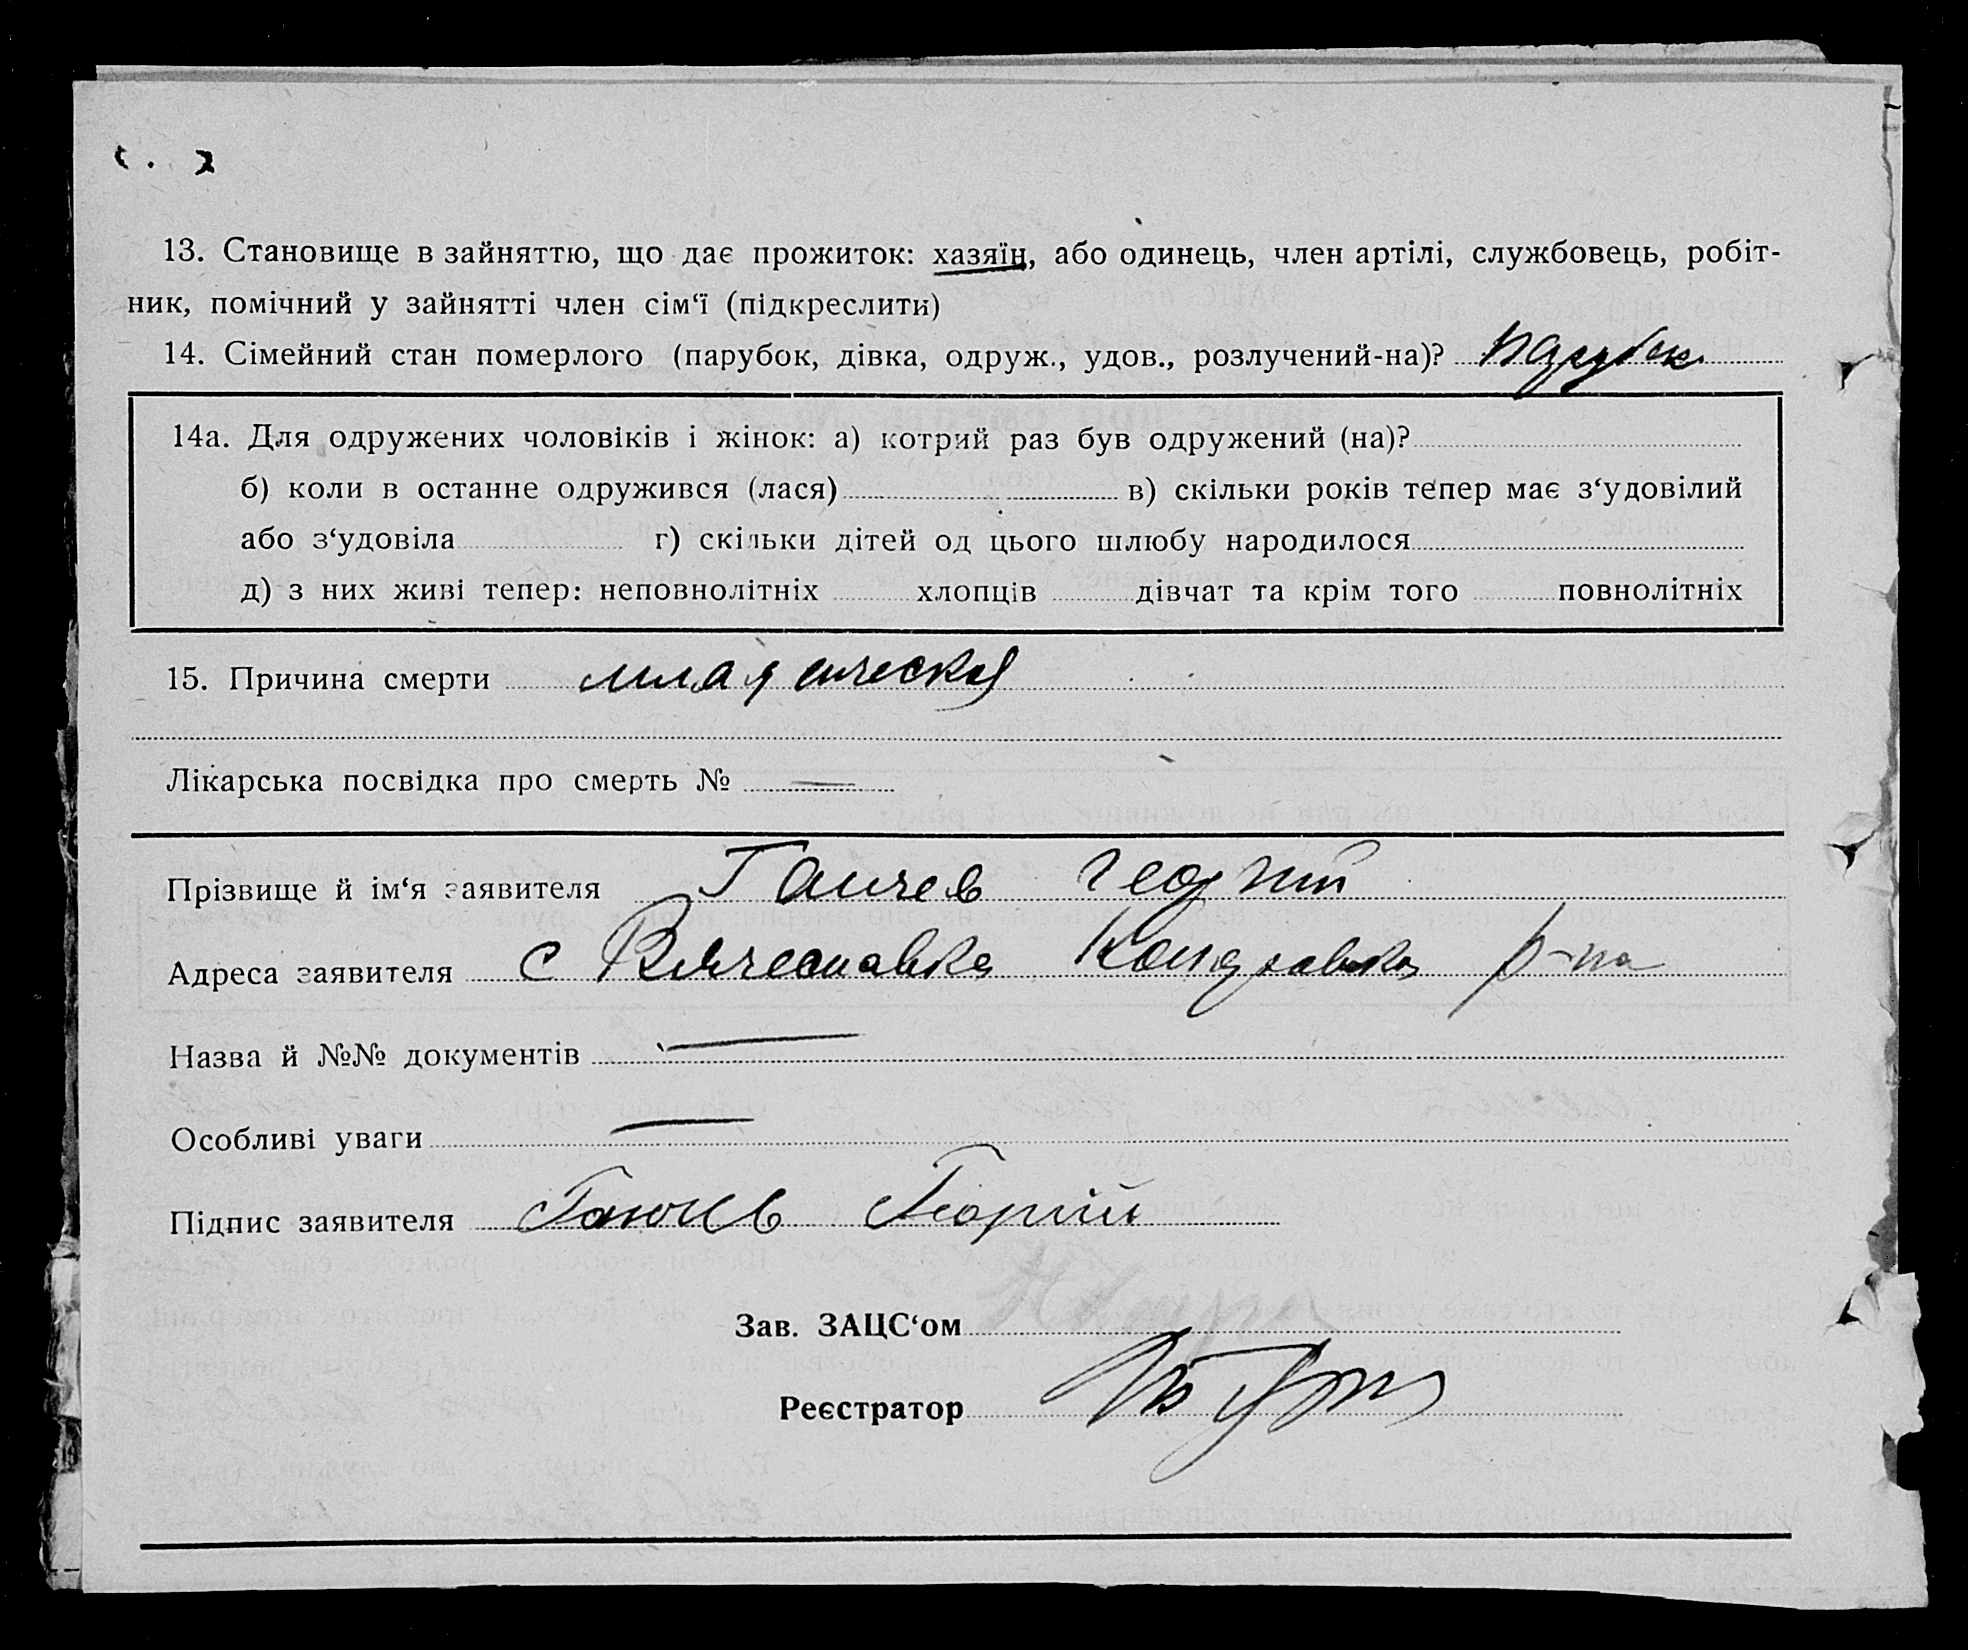 13. Становище в зайняттю, що дає прожиток: хазяїн, або одинець, член артілі, службовець, робіт-
ник, помічний у зайнятті член сім‘ї (підкреслити)
14. Сімейний стан померлого (парубок, дівка, одруж., удов., розлучений-на)? парубок
14а. Для одружених чоловіків і жінок: а) котрий раз був одружений (на)?
б) коли в останне одружився (лася) в) скільки років тепер має з‘удовілий
або з‘удовіла г) скільки дітей од цього шлюбу народилося
д) з них живі тепер: неповнолітніх хлопців дівчат та крім того повнолітніх
15. Причина смерти младенческая
Лікарська посвідка про смерть № —
Прізвище й ім‘я заявителя Ганчев Георгий
Адреса заявителя с Вячеславка р-на
Назва й №№ документів —
Особливі уваги —
Підпис заявителя Ганчев Георгий
Зав. ЗАЦС‘ом
Реєстратор